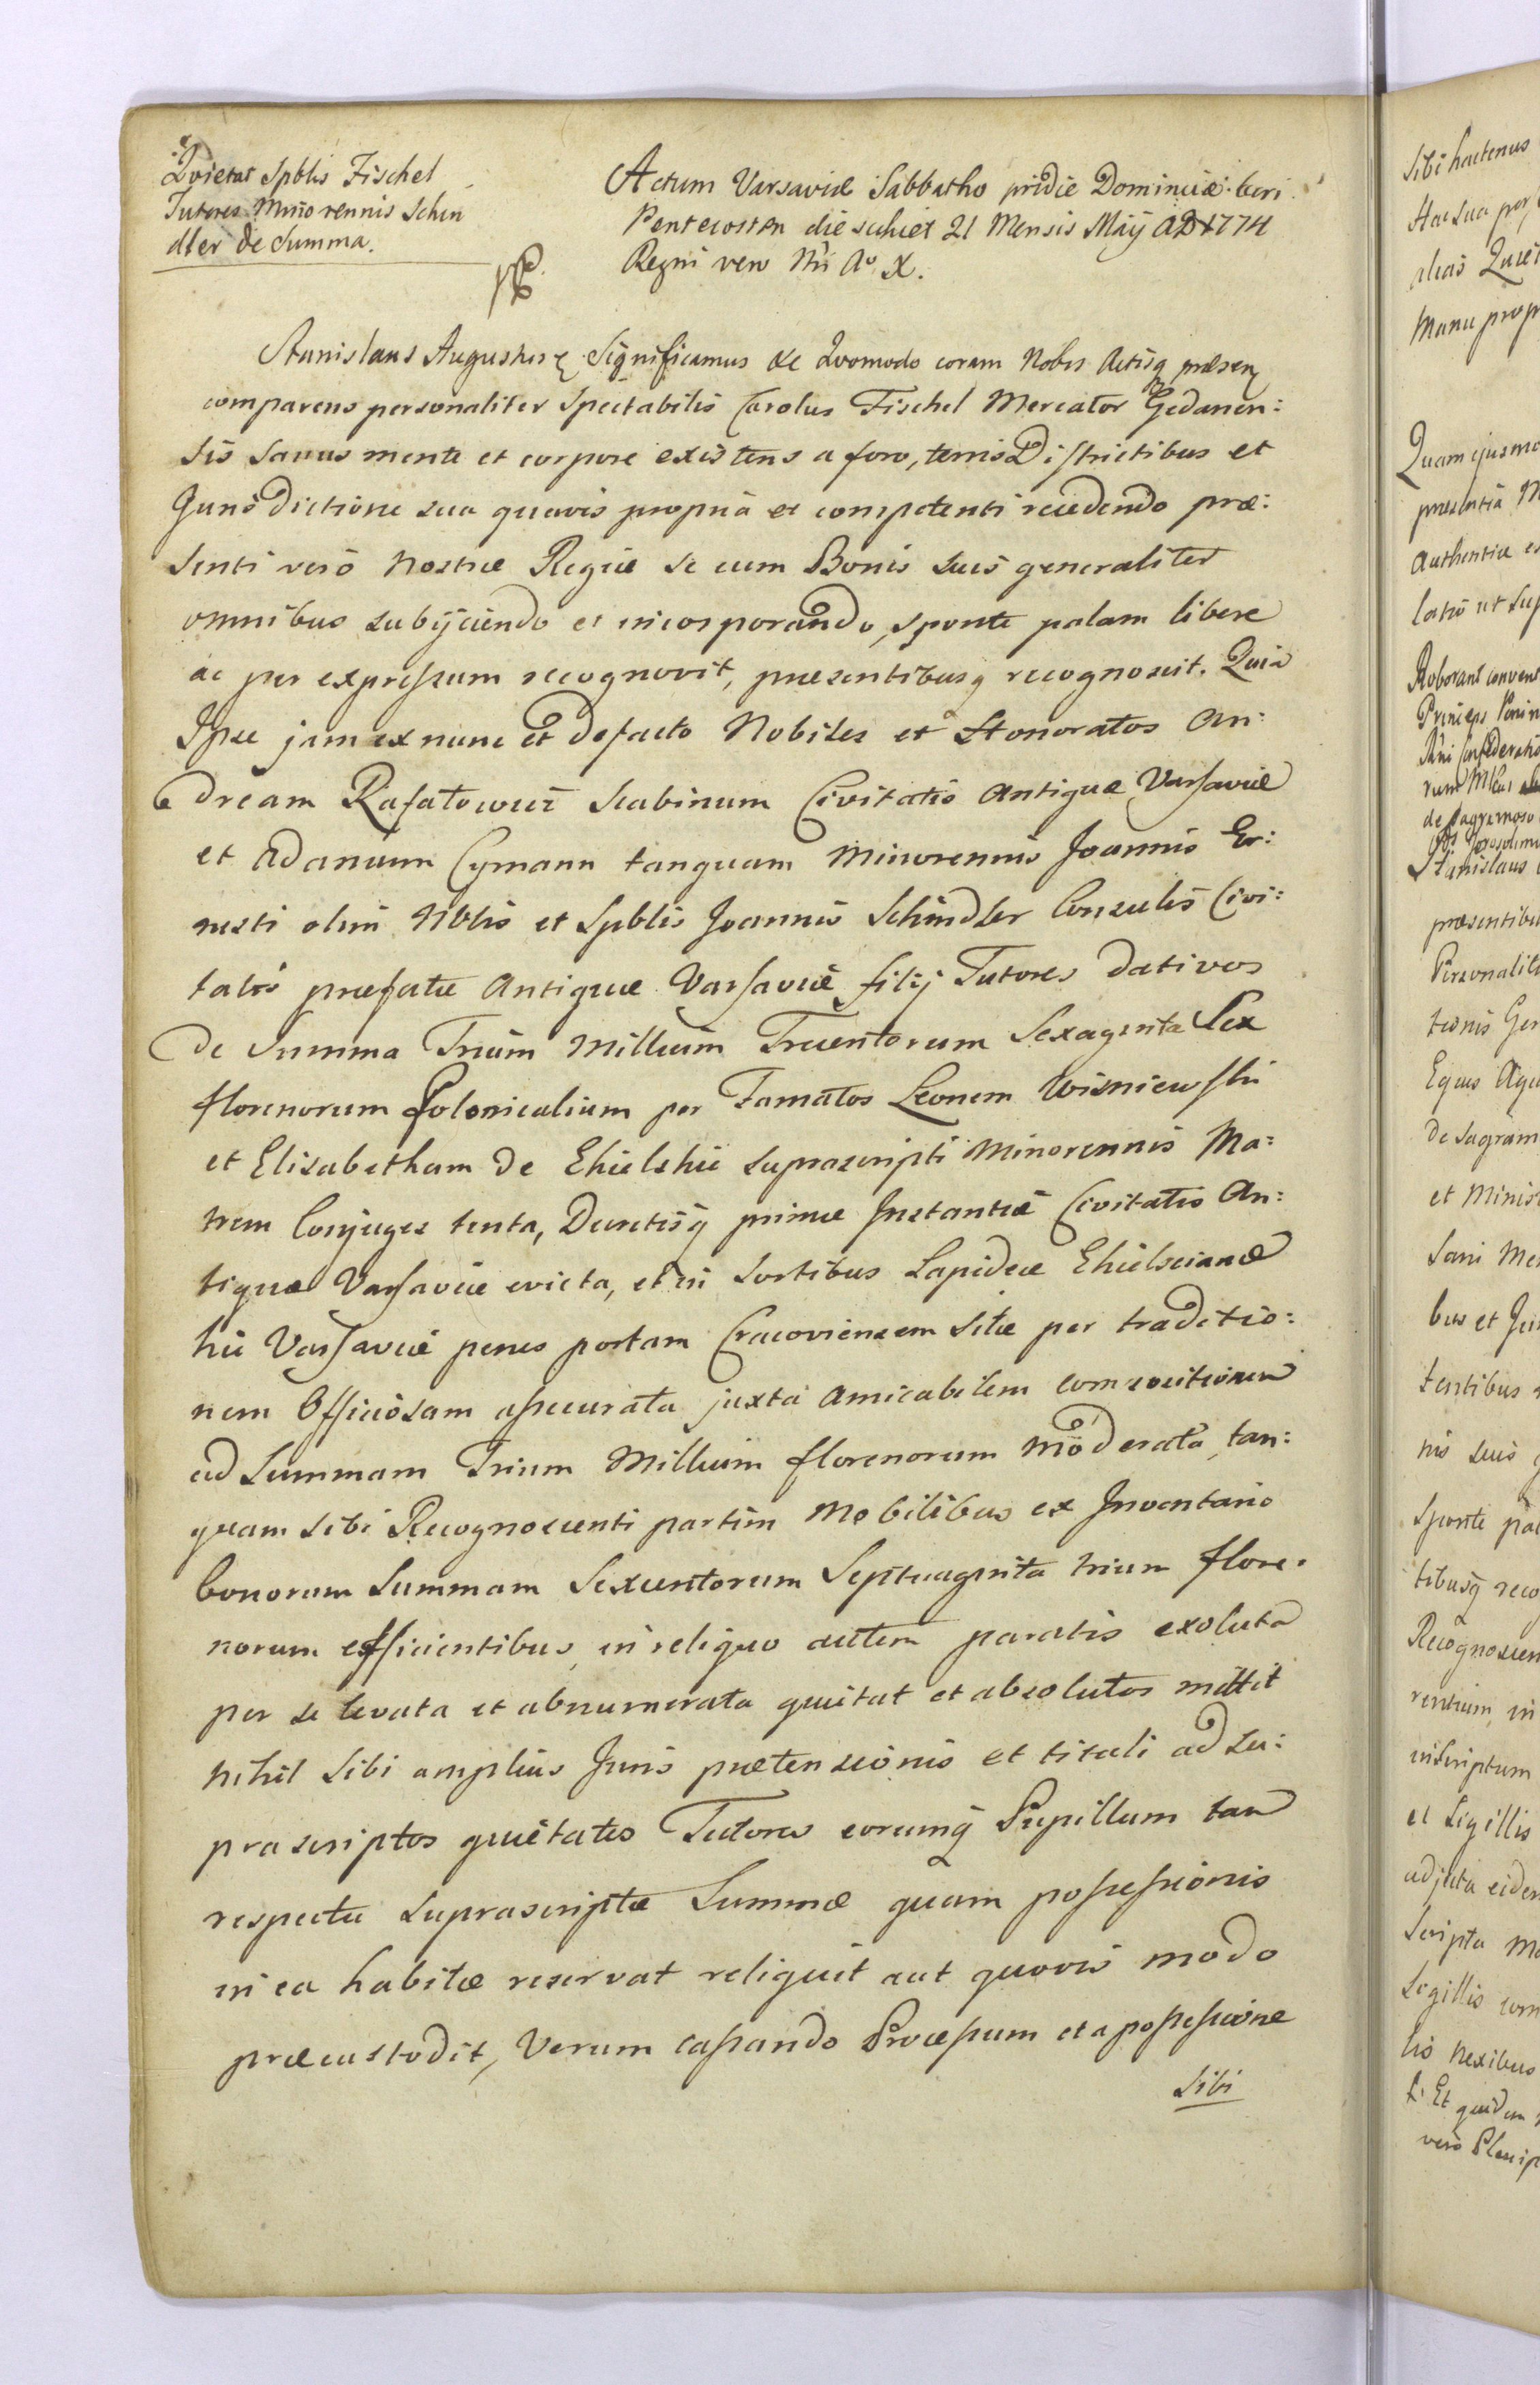 Quietat Spblis Fischel
Tutores Minorennis Schin
dler de Summa.
Actum Varsaviæ Sabbatho pridie Dominicæ
Pentecosten die scilicet 21 Mensis Maij AD 1774
Regni vero Nri Aº X.
Stanislaus Augustus Significamus &c Quomodo coram Nobis Actisq præsen
comparens personaliter Spectabilis Carolus Fischel Mercator Gedanen:
sis sanus mente et corpore existens a foro, terris Districtibus et
Jurisdictione sua quavis propria et competenti recedendo præ:
senti vero Nostræ Regiæ se cum Bonis suis generaliter
omnibus subijciendo et incorporando, sponte palam libere
ac per expressum recognovit, præsentibusq recognoscit. Quia
Ipse jam ex nunc et defacto Nobiles et Honoratos An:
dream Rafałowicz Scabinum Civitatis Antiquæ Varsaviæ
et Adamum Cymann tanquam Minorennis Joannis Er:
nesti olim Nblis et Spblis Joannis Schindler Consulis Civi:
tatis præfatæ Antiquæ Varsaviæ filij Tutores dativos
de Summa Trium Millium Trecentorum Sexaginta Sex
florenorum Polonicalium per Famatos Leonem Wisniewski
et Elisabetham de Ehielskie suprascripti Minorennis Ma:
trem Conjuges tenta, Decretisq primæ Instantiæ Civitatis An:
tiquæ Varsaviæ evicta, et in Sortibus Lapideæ Ehielscianæ
hic Varsaviæ penes portam Cracoviensem Sitæ per traditio:
nem Officiosam assecurata juxta Amicabilem compositionem
ad Summam Trium Millium florenorum moderata, tan:
quam sibi Recognoscenti partim Mobilibus ex Inventario
bonorum Summam Sexcentorum Septuaginta trium flore:
norum efficientibus, in reliquo autem paratis exoluta
per se levata et abnumerata quietat et absolutos mittit
nihil sibi amplius Juris prætensionis et tituli ad su:
prascriptos quietatos Tutores eorumq Pupillum tam
respectu suprascriptæ Summæ quam possessionis
in ea habitæ reservat reliquit aut quovis modo
præcustodit, Verum cassando Processum et a possessione
sibi
Sibi hactenus
Quam ejusmo
Authentica
Roborant
Princeps
Stanislaus
præsentibu
Personalit
tionis Gen
Equs
de Sagram
et Minist
Sponte pal
tibusq reco
Recognoscen
inscriptum
et Sigillis
Scripta
Sigillis
lis nexibus
Et quidem
vero Plenip